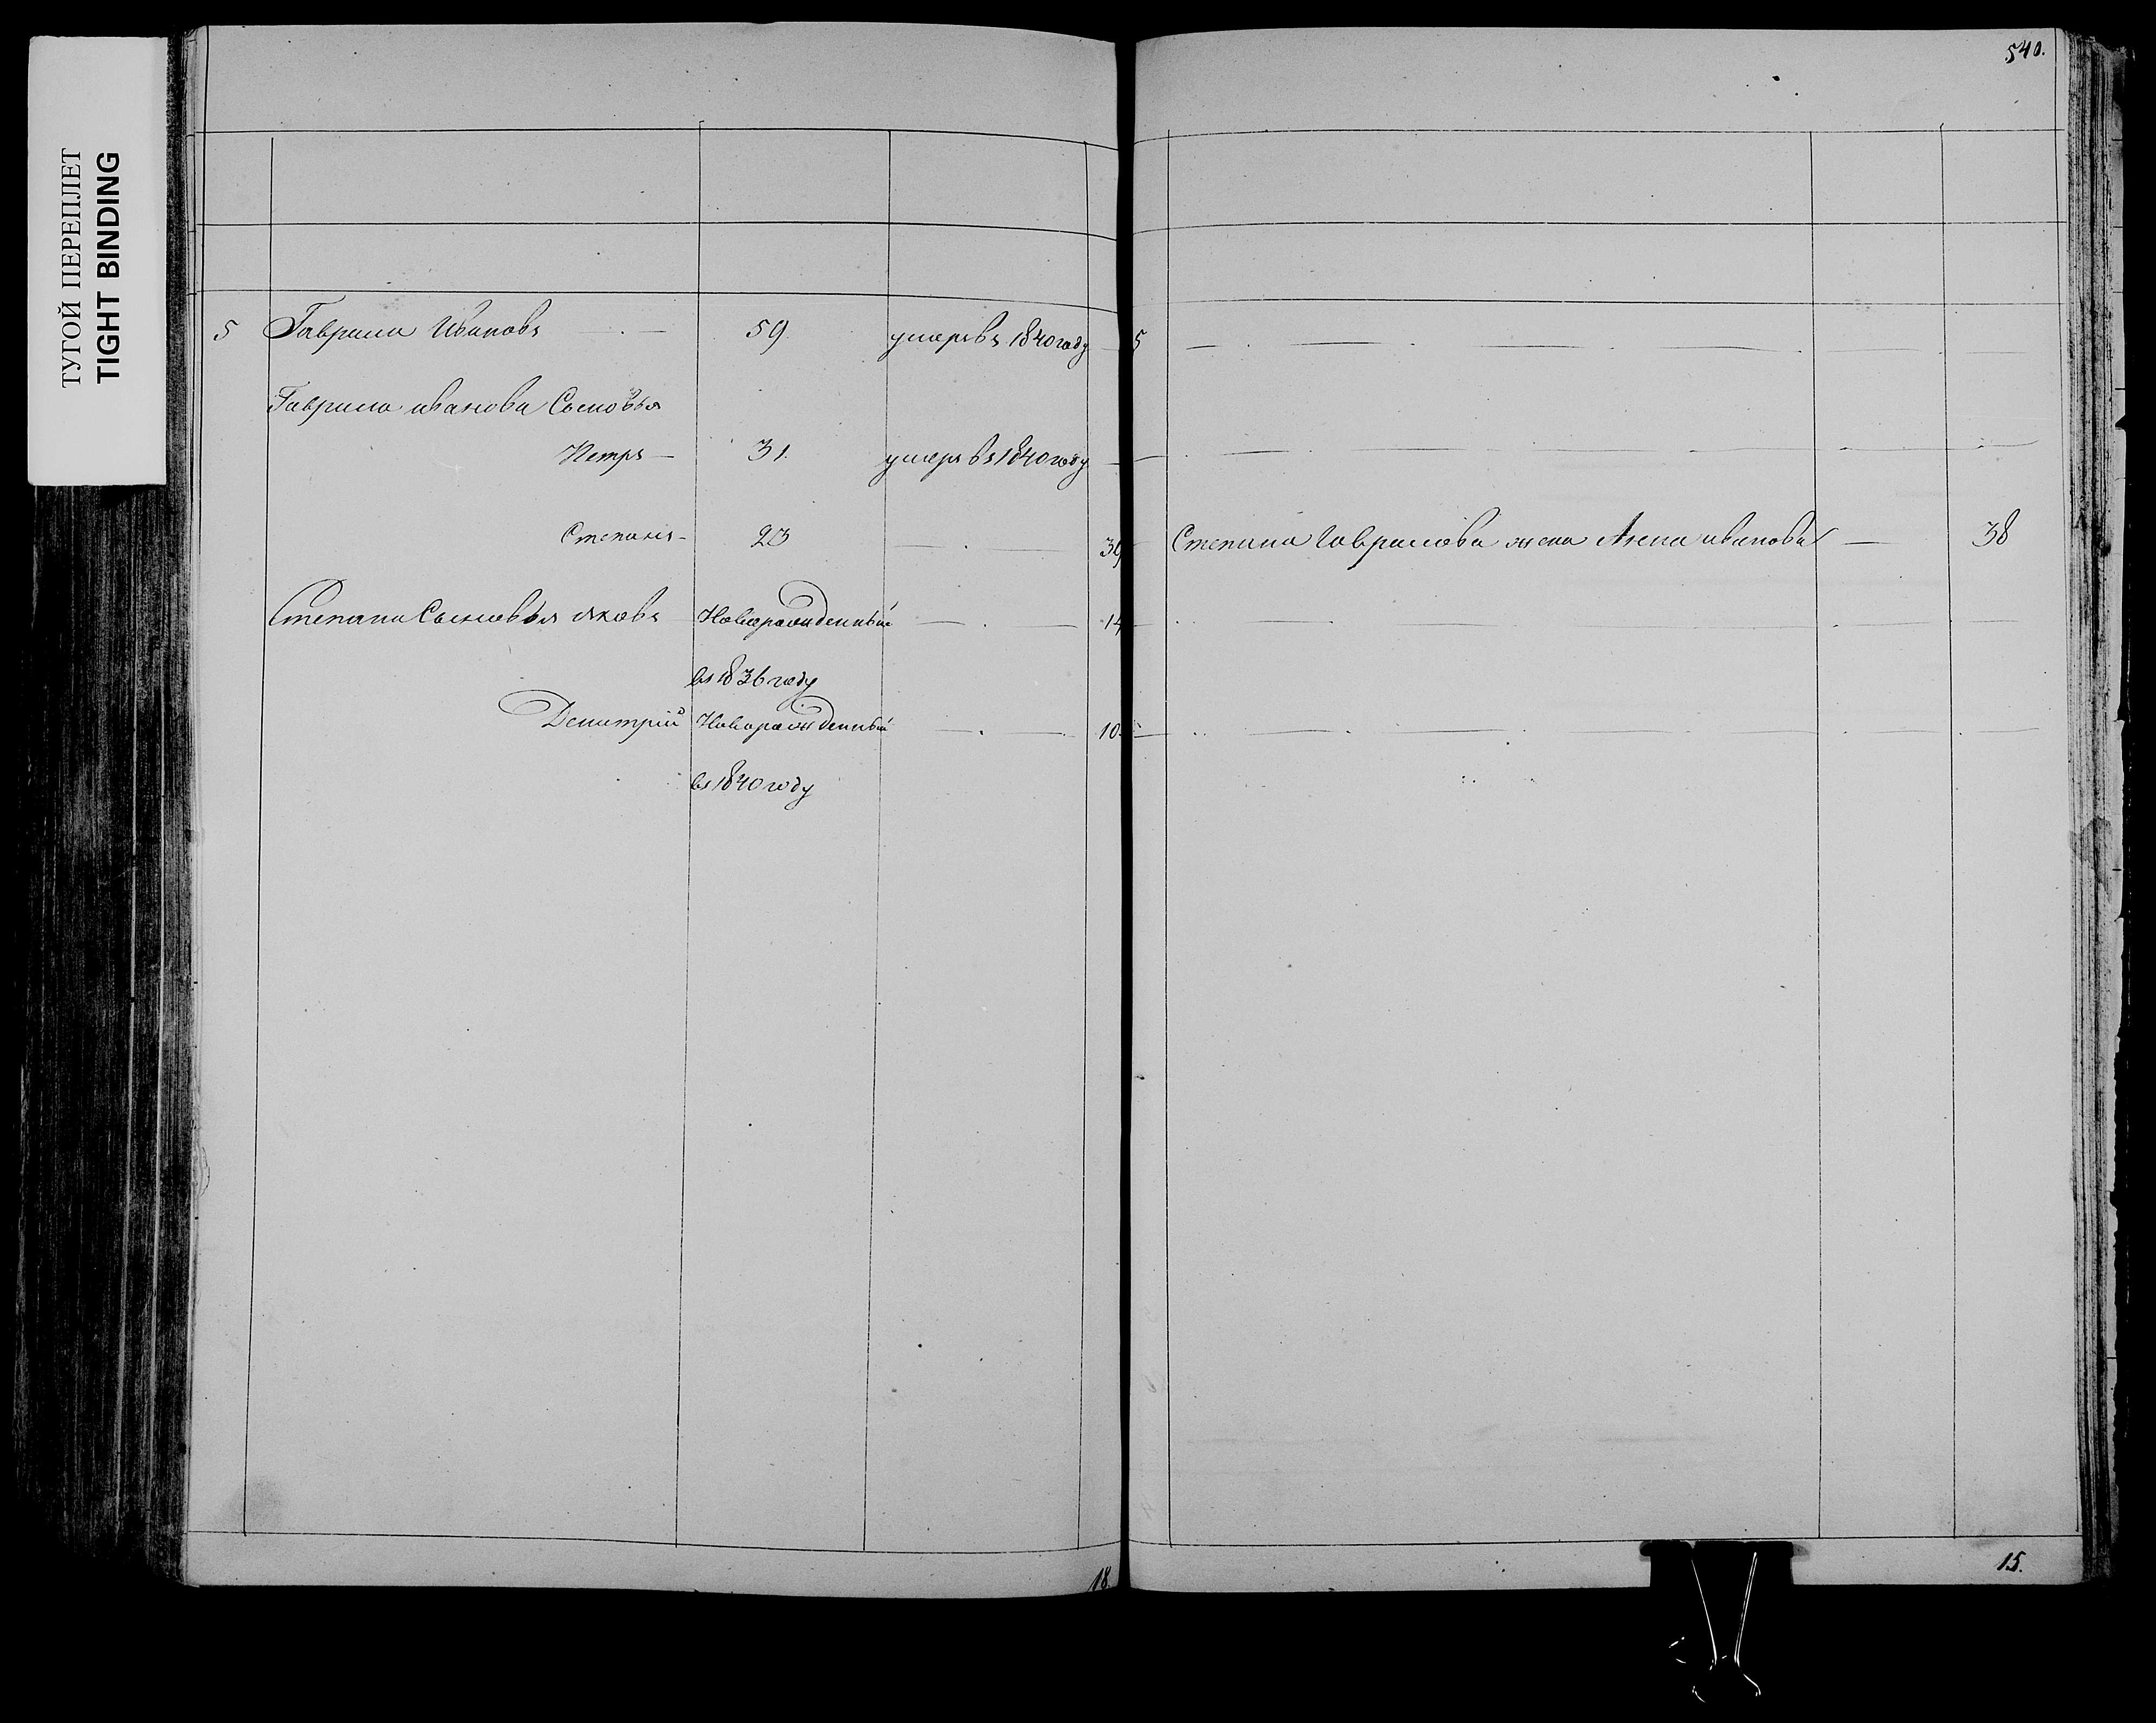 ТУГОЙ ПЕРЕПЛЕТ
TIGHT BINDING
540.
5 Гаврила Ивановъ — 59. умеръ въ 1840 году — 5
Гаврила иванова Сыновья
Петръ — 31. умеръ въ 1840 году
Степанъ — 23 — 39 Степана Гаврилова жена Анна иванова — 38
Степана Сыновья яковъ Новорожденный — 14
въ 1836 году
Дмитрий Новорожденный — 10.
въ 1840 году
18.
15.